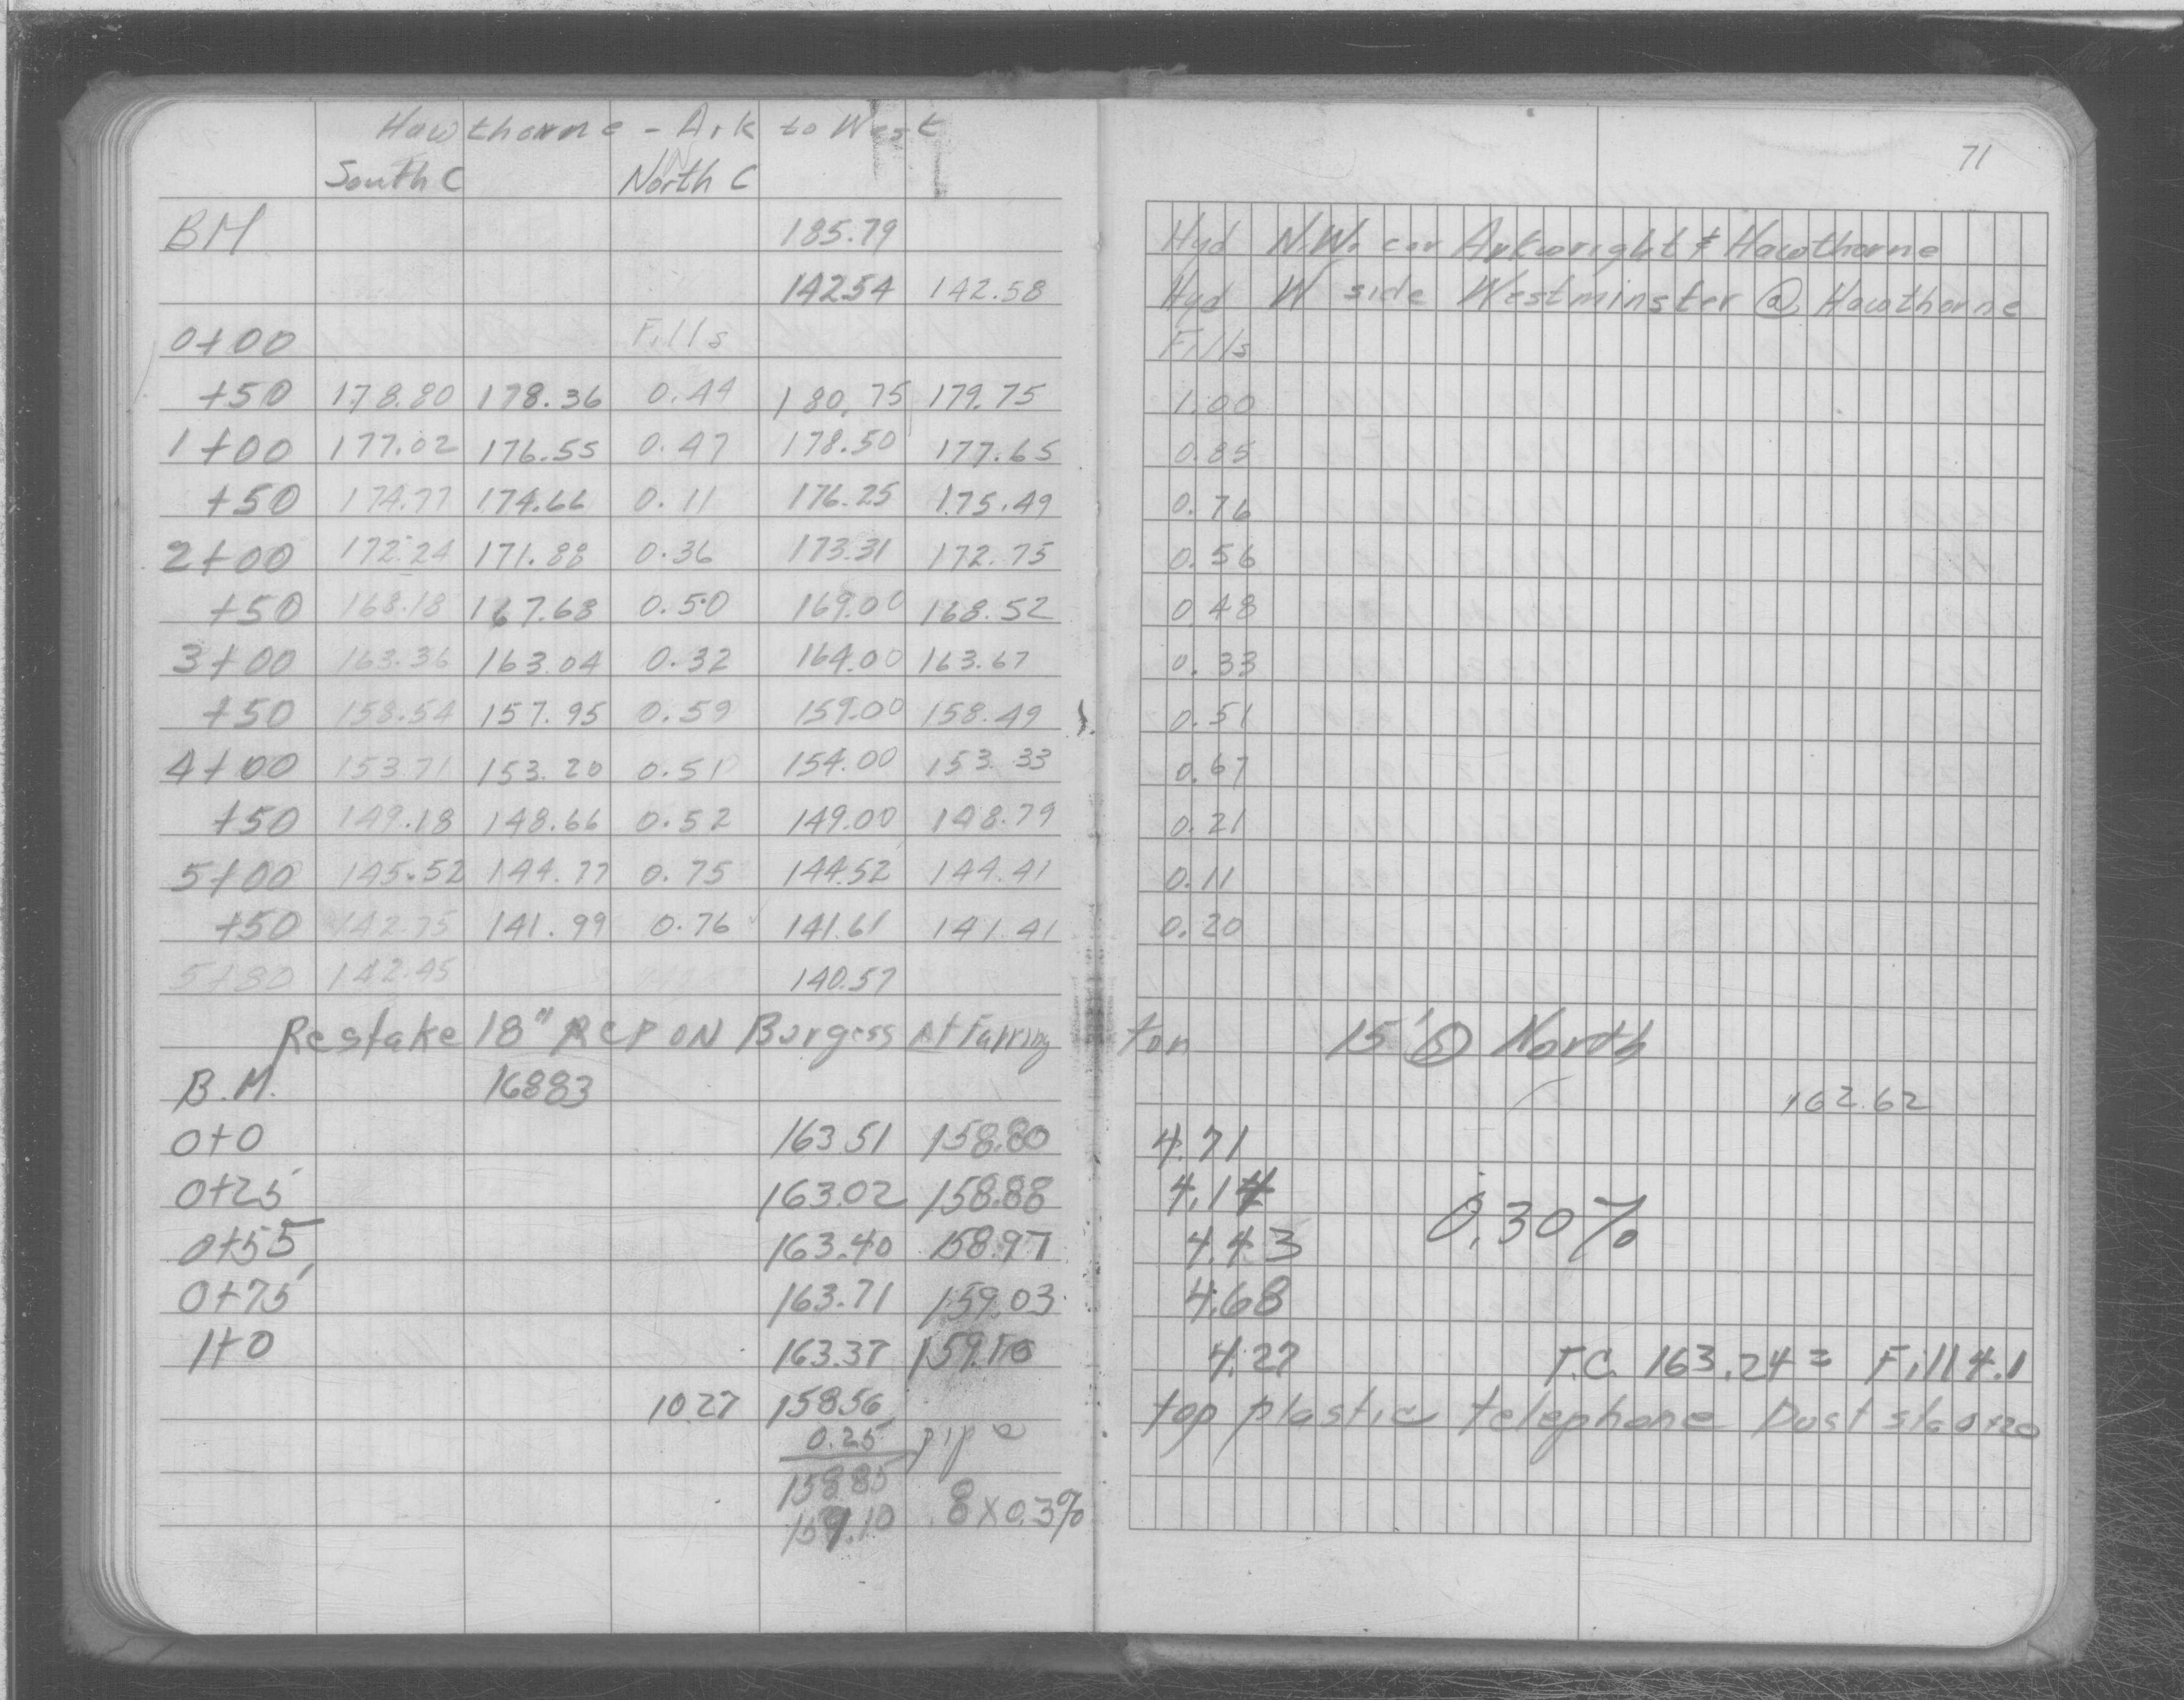 71
Hawthorne - Ark to West
South C North C
BM 185.79 Hyd N.W. cor Arkwright & Hawthorne
142.54 142.58 Hyd W side Westminster @ Hawthorne
0+00 Fills Fills
+50 178.80 178.36 0.44 180.75 179.75 1.00
1+00 177.02 176.55 0.47 178.50 177.65 0.85
+50 174.77 174.66 0.11 176.25 175.49 0.76
2+00 172.24 171.88 0.36 173.31 172.75 0.56
+50 168.18 167.68 0.50 169.00 168.52 0.48
3+00 163.36 163.04 0.32 164.00 163.67 0.33
+50 158.54 157.95 0.59 159.00 158.49 0.51
4+00 153.71 153.20 0.51 154.00 153.33 0.67
+50 149.18 148.66 0.52 149.00 148.79 0.21
5+00 145.52 144.77 0.75 144.52 144.41 0.11
+50 142.75 141.99 0.76 141.61 141.41 0.20
5+80 142.45 140.57
Restake 18" RCP ON Burgess At Farrington 15' North
B.M. 16883 162.62
0+0 163.51 158.80 4.71
0+25 163.02 158.88 4.14
0+55 163.40 158.97 4.43 0.30%
0+75 163.71 159.03 4.68
1+0 163.37 159.10 4.27 T.C. 163.24 = Fill 4.1
10.27 158.56 top plastic telephone Dust sta 0+20
0.25 pipe
158.85
159.10 .8 X 0.3%